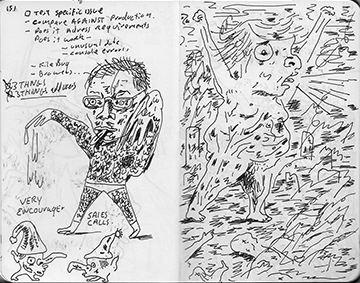 TEST SPECIFIC ISSUE
- COMPARE AGAINST PRODUCTION.
DOES IT ADRESS REQUIREMENTS
DOES IT WORK -
- UNUSUAL DATA
- CONSOLE ERRORS
- FILE BUG
- BROWSERS..
3 THINGS
3 THINGS
VERY
ENCOURAGED
SALES
CALLS